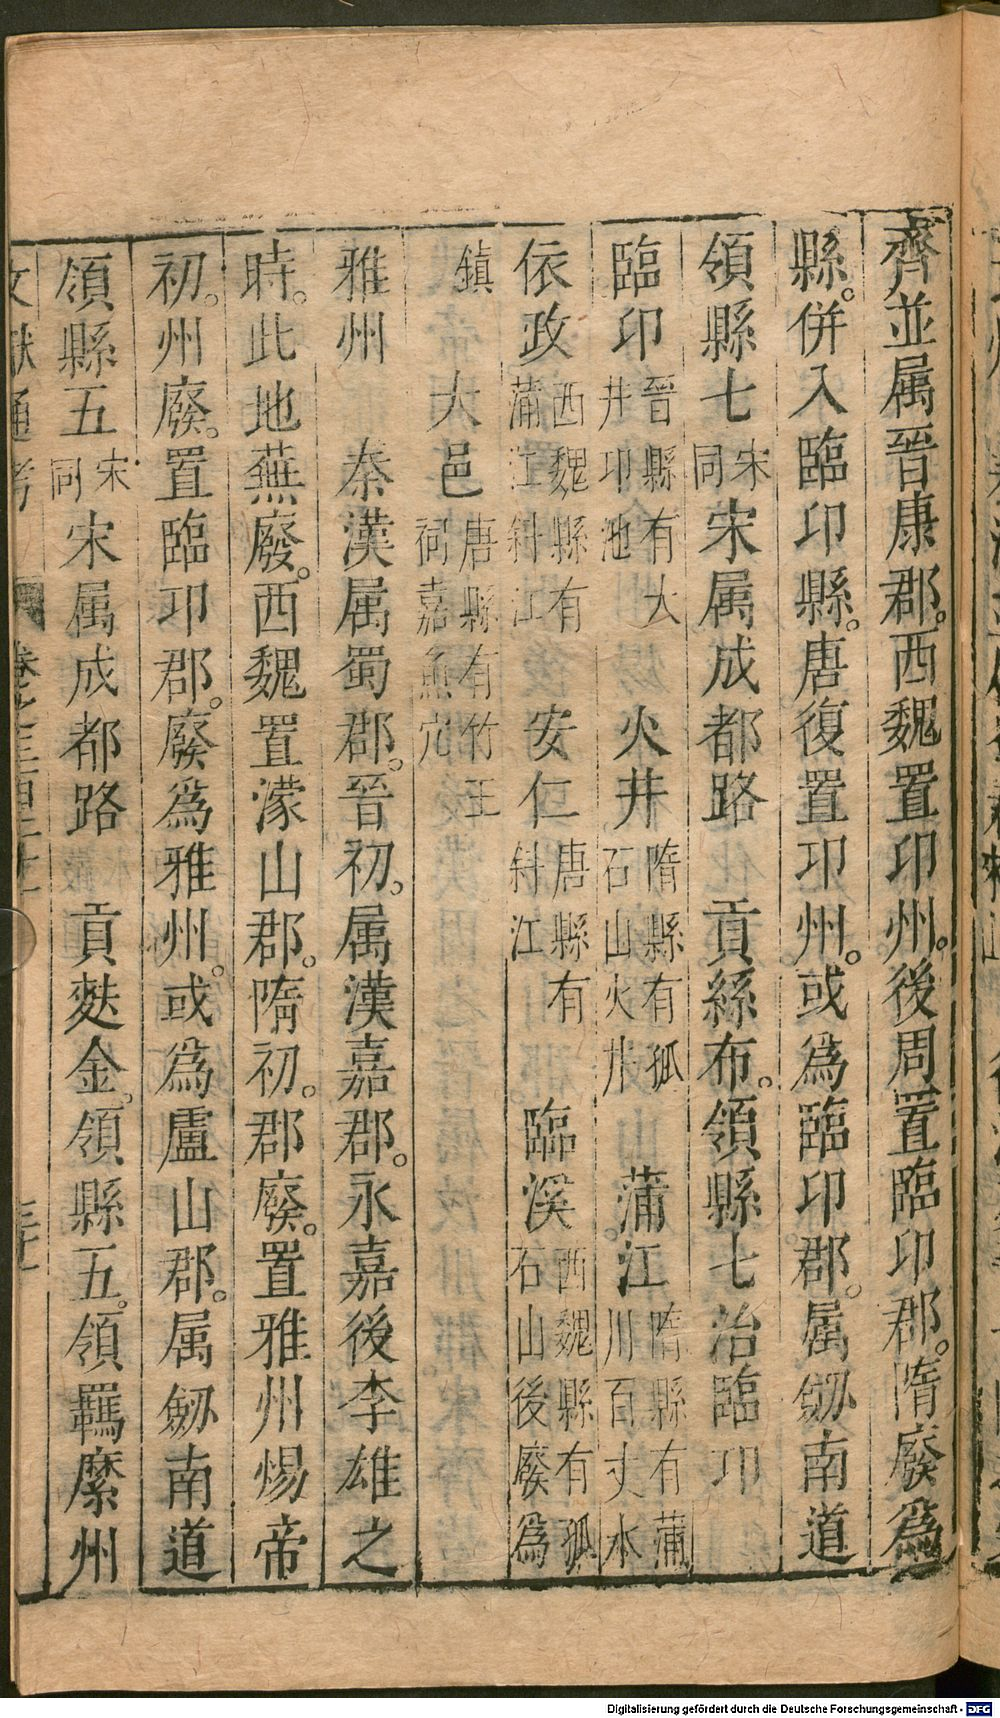 齊並属晉康郡。西魏置印州。後周置臨印郡。隋廢爲
縣。併入臨印縣。唐復置卭州。或爲臨印郡。属劒南道
領縣七宋同宋属成都路 貢絲布。領縣七治臨卭
臨印晉縣有大井卭池 火井隋縣有孤石山火井 蒲江隋縣有蒲川百丈水
依政西魏縣有蒲江斜江 安仁唐縣有斜江 臨溪西魏縣有孤石山後廢爲
鎮 大邑唐縣有竹王祠嘉魚穴
雅州 秦漢属蜀郡。晉初。属漢嘉郡。永嘉後李雄之
時。此地蕪廢。西魏置濛山郡。隋初。郡廢。置雅州煬帝
初。州廢。置臨卭郡。廢爲雅州。或爲盧山郡。属劒南道
領縣五宋同宋属成都路 貢麩金。領縣五。領羈縻州
文獻通考